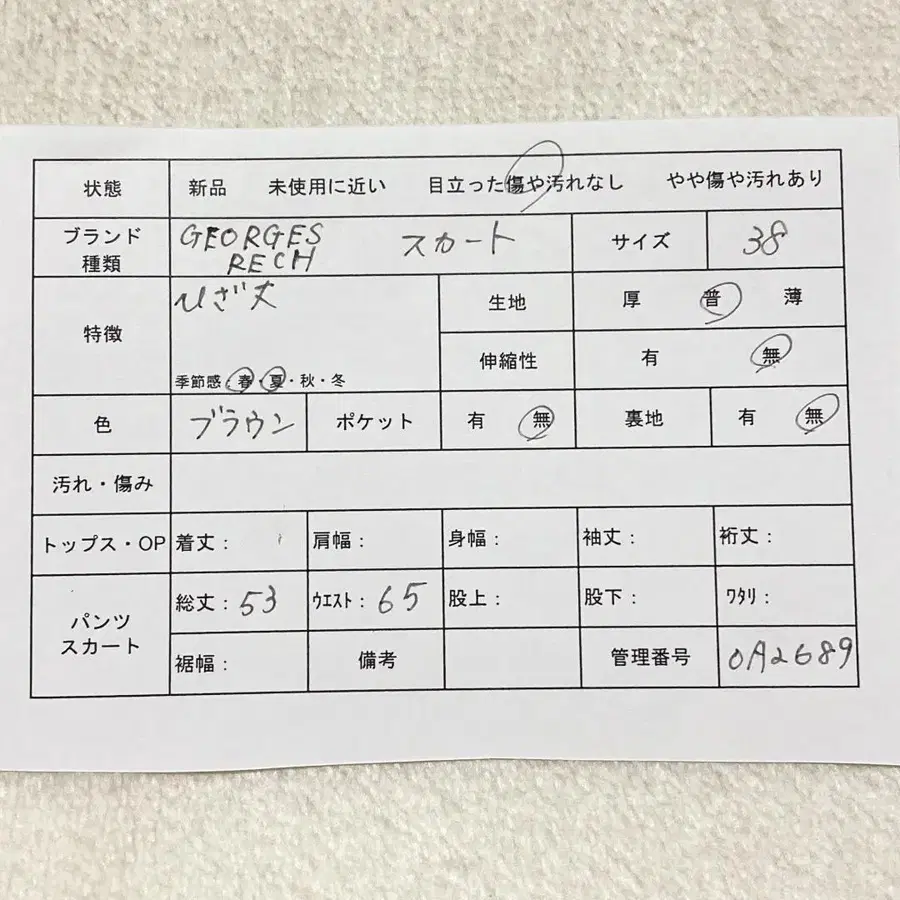 状態 新品 未使用に近い 目立った傷や汚れなし やや傷や汚れあり
ブランド 種類 GEORGES RECH スカート サイズ 38
特徴 ひざ丈 生地 厚 普 薄
季節感 春・夏・秋・冬 伸縮性 有 無
色 ブラウン ポケット 有 無 裏地 有 無
汚れ・傷み
トップス・OP 着丈: 肩幅: 身幅: 袖丈: 裄丈:
パンツ スカート 総丈:53 ウエスト:65 股上: 股下: ワタリ:
裾幅: 備考 管理番号 0A2689